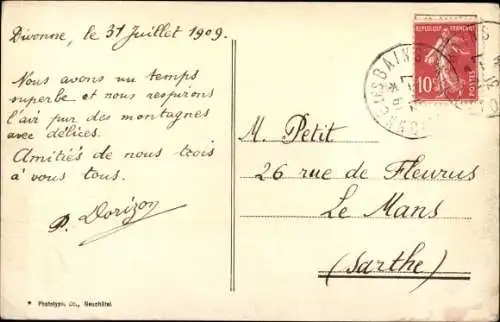 Divonne, le 31 Juillet 1909.
Nous avons un temps
superbe et nous respirons
l'air pur des montagnes
avec délices.
Amitiés de nous trois
à vous tous.
P. Dorizon
* Phototypie Co., Neuchâtel
REPUBLIQUE FRANÇAISE
10c
POSTES
BAINS
M. Petit
26 rue de Fleurus
Le Mans
(Sarthe)